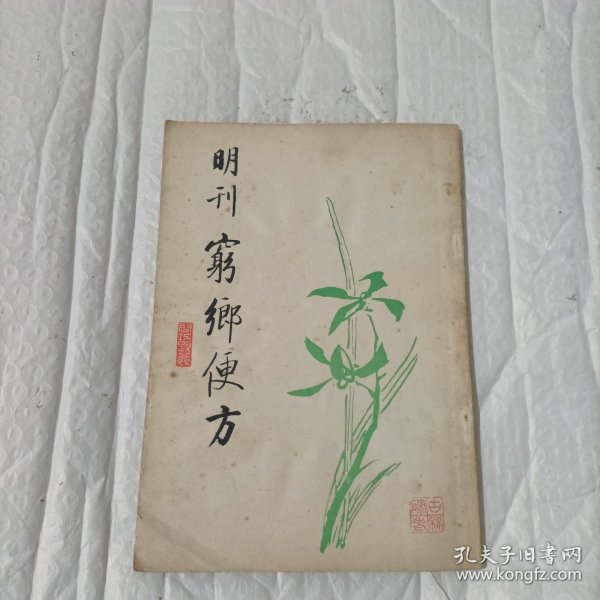 明刊 窮鄉便方
孔夫子旧书网
www.kongfz.com